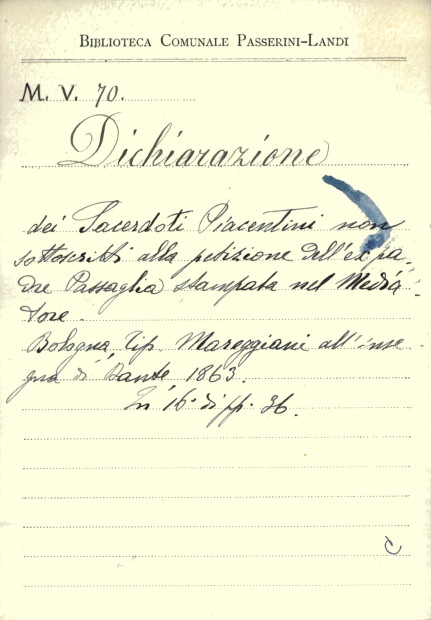 BIBLIOTECA COMUNALE PASSERINI-LANDI
M. V. 70.
Dichiarazione
dei Sacerdoti Piacentini non
sottoscritti alla petizione dell'ex pa-
dre Passaglia stampata nel Media-
tore.
Bologna, Tip. Mareggiani all'inse
gna di Dante, 1863.
In 16° di pp. 36.
C